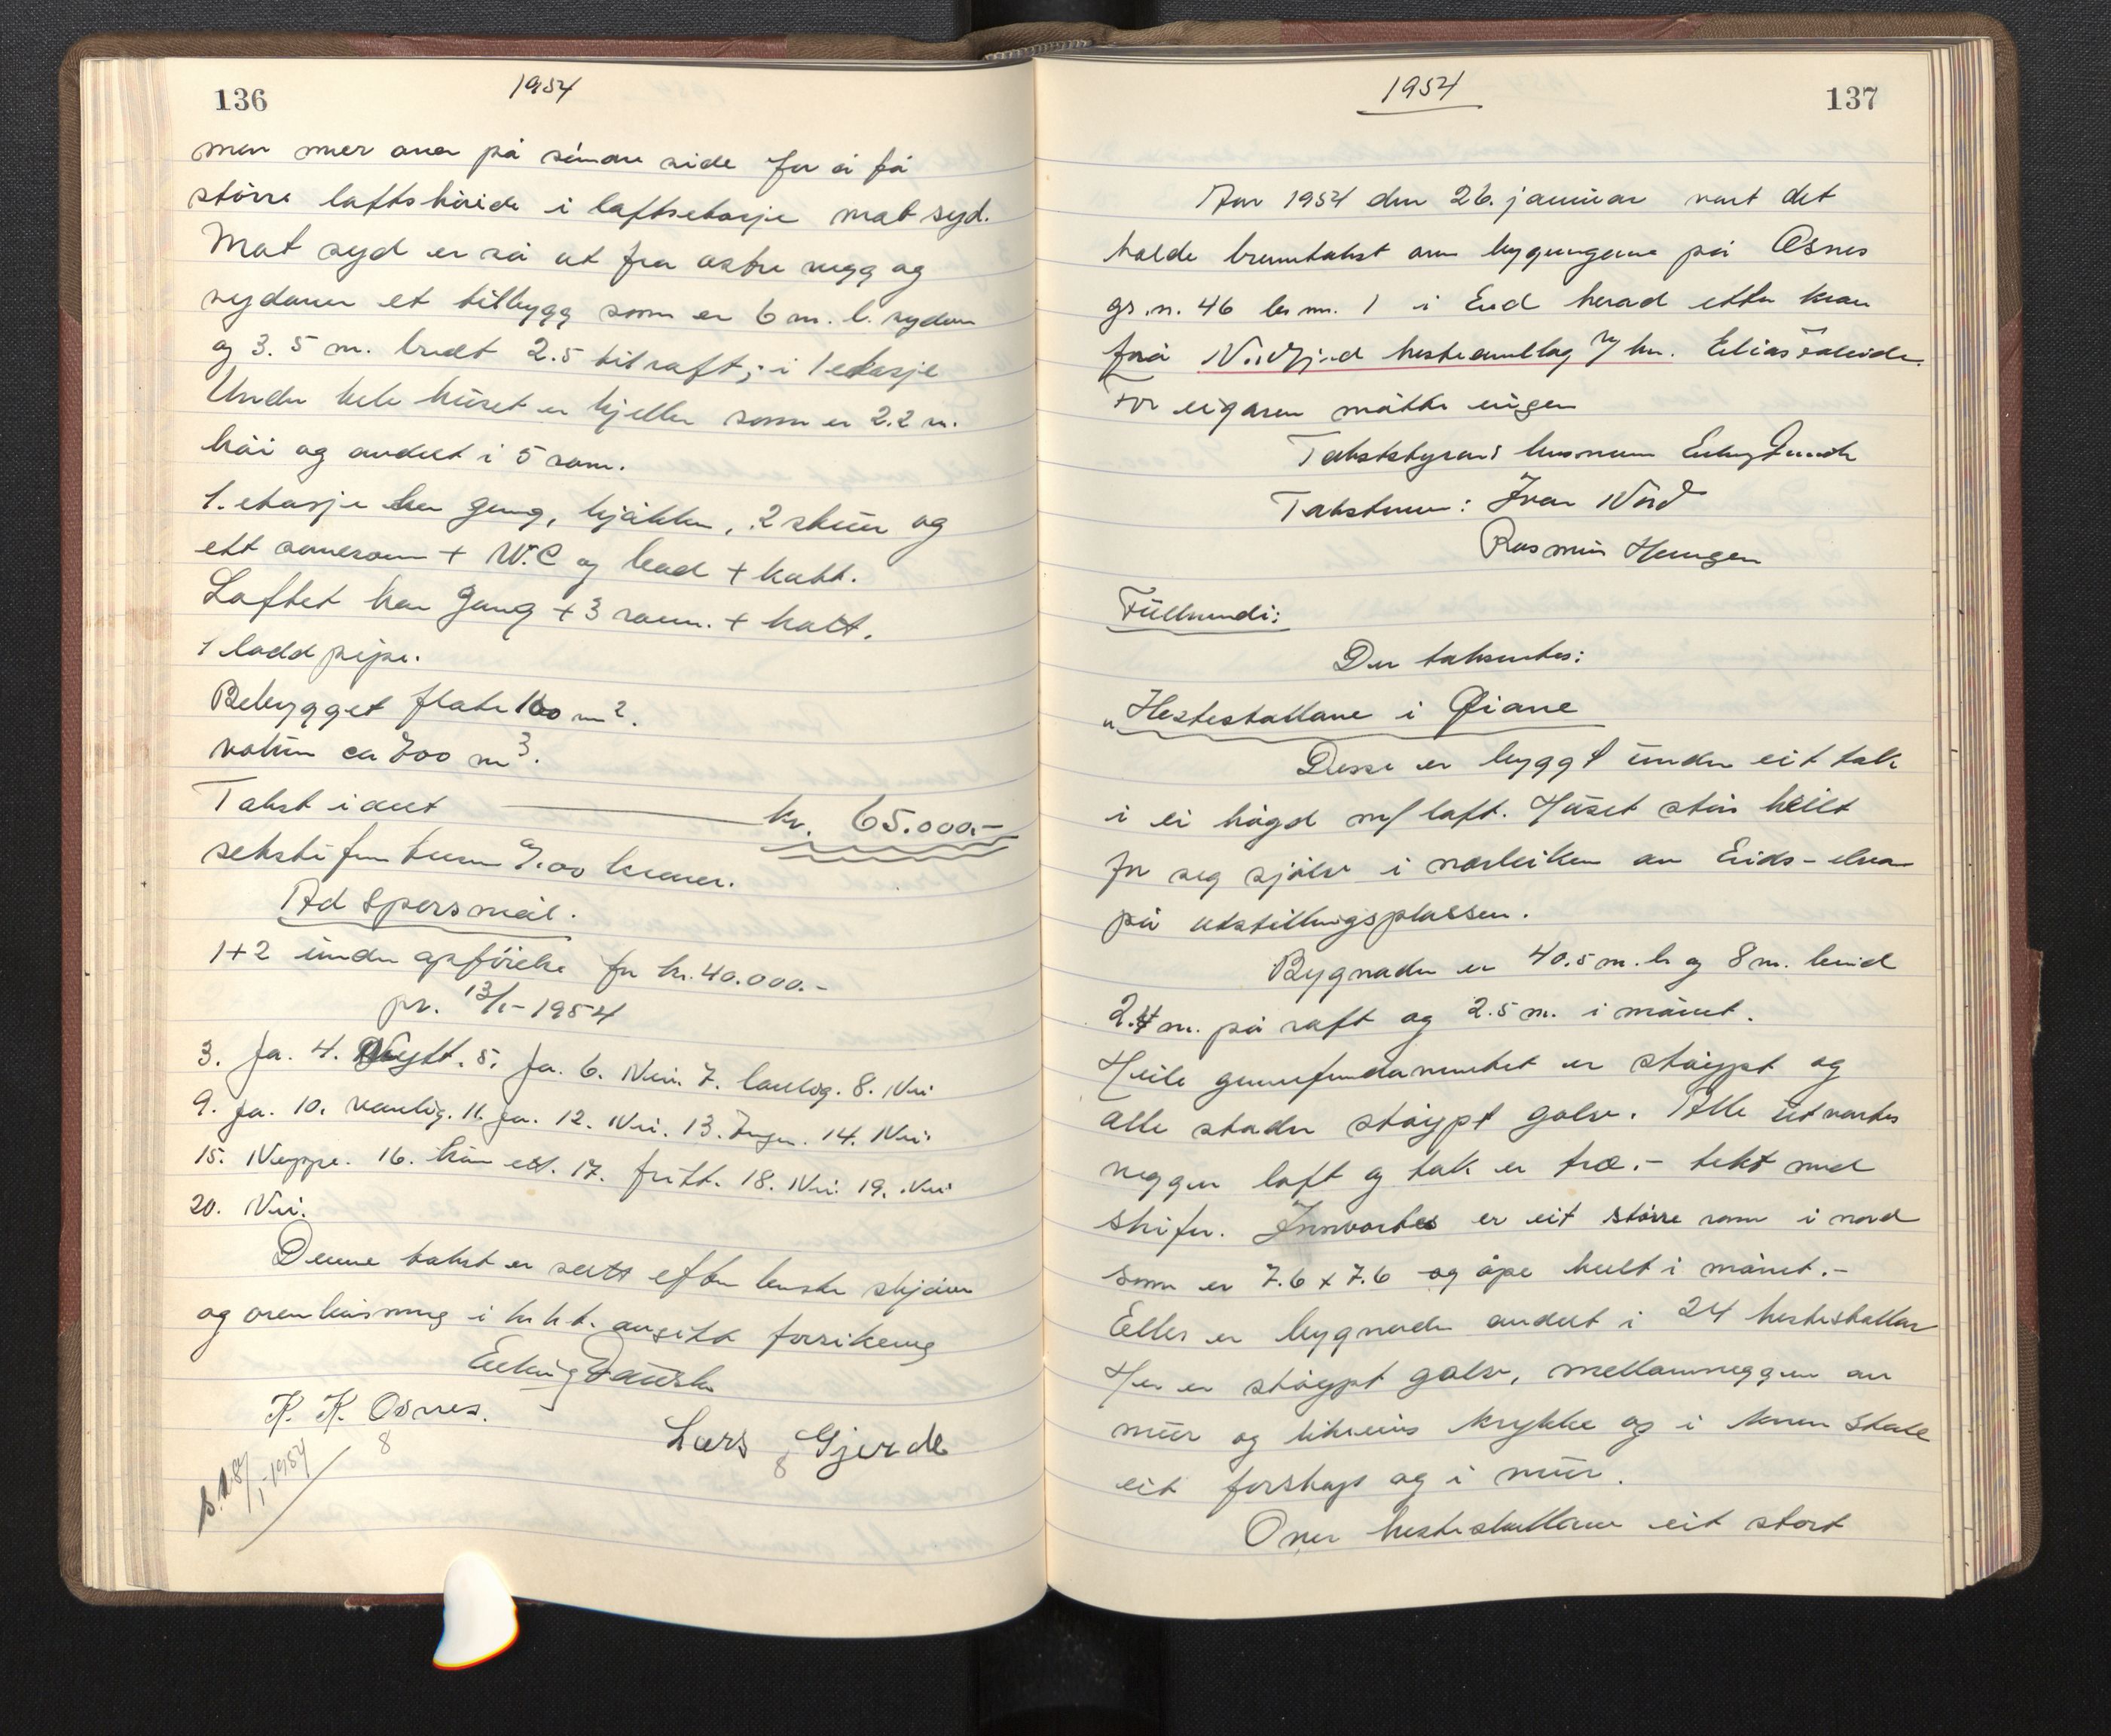 136
1954
men mer oven på søndre side for å få
större loftshöide i loftsetasje mot syd.
Mot syd er så at fra østre vegg og
sydover et tilbygg som er 6 m. l. sydover
og 3.5 m. bredt 2.5 til raft; i 1 etasje
Under hele huset er kjeller som er 2.2 m.
höi og andelt i 5 rom.
1. etasje har gang, kjökken, 2 stuer og
ett soverom + W.C og bad + kott.
Loftet har Gang + 3 rom. + kott.
1 lodd pipe.
Bebygget flate 100 m².
volum ca 700 m³.
Takst i alt kr. 65.000.-
sekstifem tusen kroner.
Ad Spørsmål.
1+2 under opförelse for kr. 40.000.-
pr. 13/1-1954
3. Ja. 4. Nytt. 5. Ja. 6. Nei. 7. lovlig. 8. Nei
9. Ja. 10. vanlig. 11. Ja. 12. Nei. 13. Ingen. 14. Nei.
15. Neppe. 16. kun ett. 17. fritt. 18. Nei. 19. Nei
20. Nei.
Denne takst er satt efter beste skjönn
og overbevisning i h.h.t. avgitt forsikring
K. K. Osnes.
Lars Gjerde
8 8
s. 18/1-1954
1954
137
Aar 1954 den 26. januar vart det
halde branntakst over bygningane på Osnes
gr.n. 46 br nr. 1 i Eid herad etter krav
frå Nordfjord hesteavllag v/ hr. Elias
For eigaren møtte eingen
Takststyrar: lensmann
Takstmenn: Ivar Nord
Rasmus Haugen
Fyllkunde:
Der taksertes:
"Hestestallane i Øiane
Desse er bygg t under eit tak
i ei högd m/ loft. Huset står heilt
for seg sjölv i nærleiken av Eids-elva
på utstillingsplassen.
Bygnaden er 40.5 m. l. og 8 m. breid
2.4 m. på raft og 2.5 m. i mönet.
Heile grunnfundamentet er stöypt og
alle stader stöypt golv. Alle utvortes
vegger loft og tak er træ.- tekt med
skifer. Innvortes er eit större rom i nord
som er 7.6 x 7.6 og åpe heilt i mönet.-
Elles er bygnaden andelt i 24 hestestallar
Her er stöypt golv, mellomveggen av
mur og likeeins krykkje og i kvar stall
eit forskap og i mur.
Over hestestallane eit stort